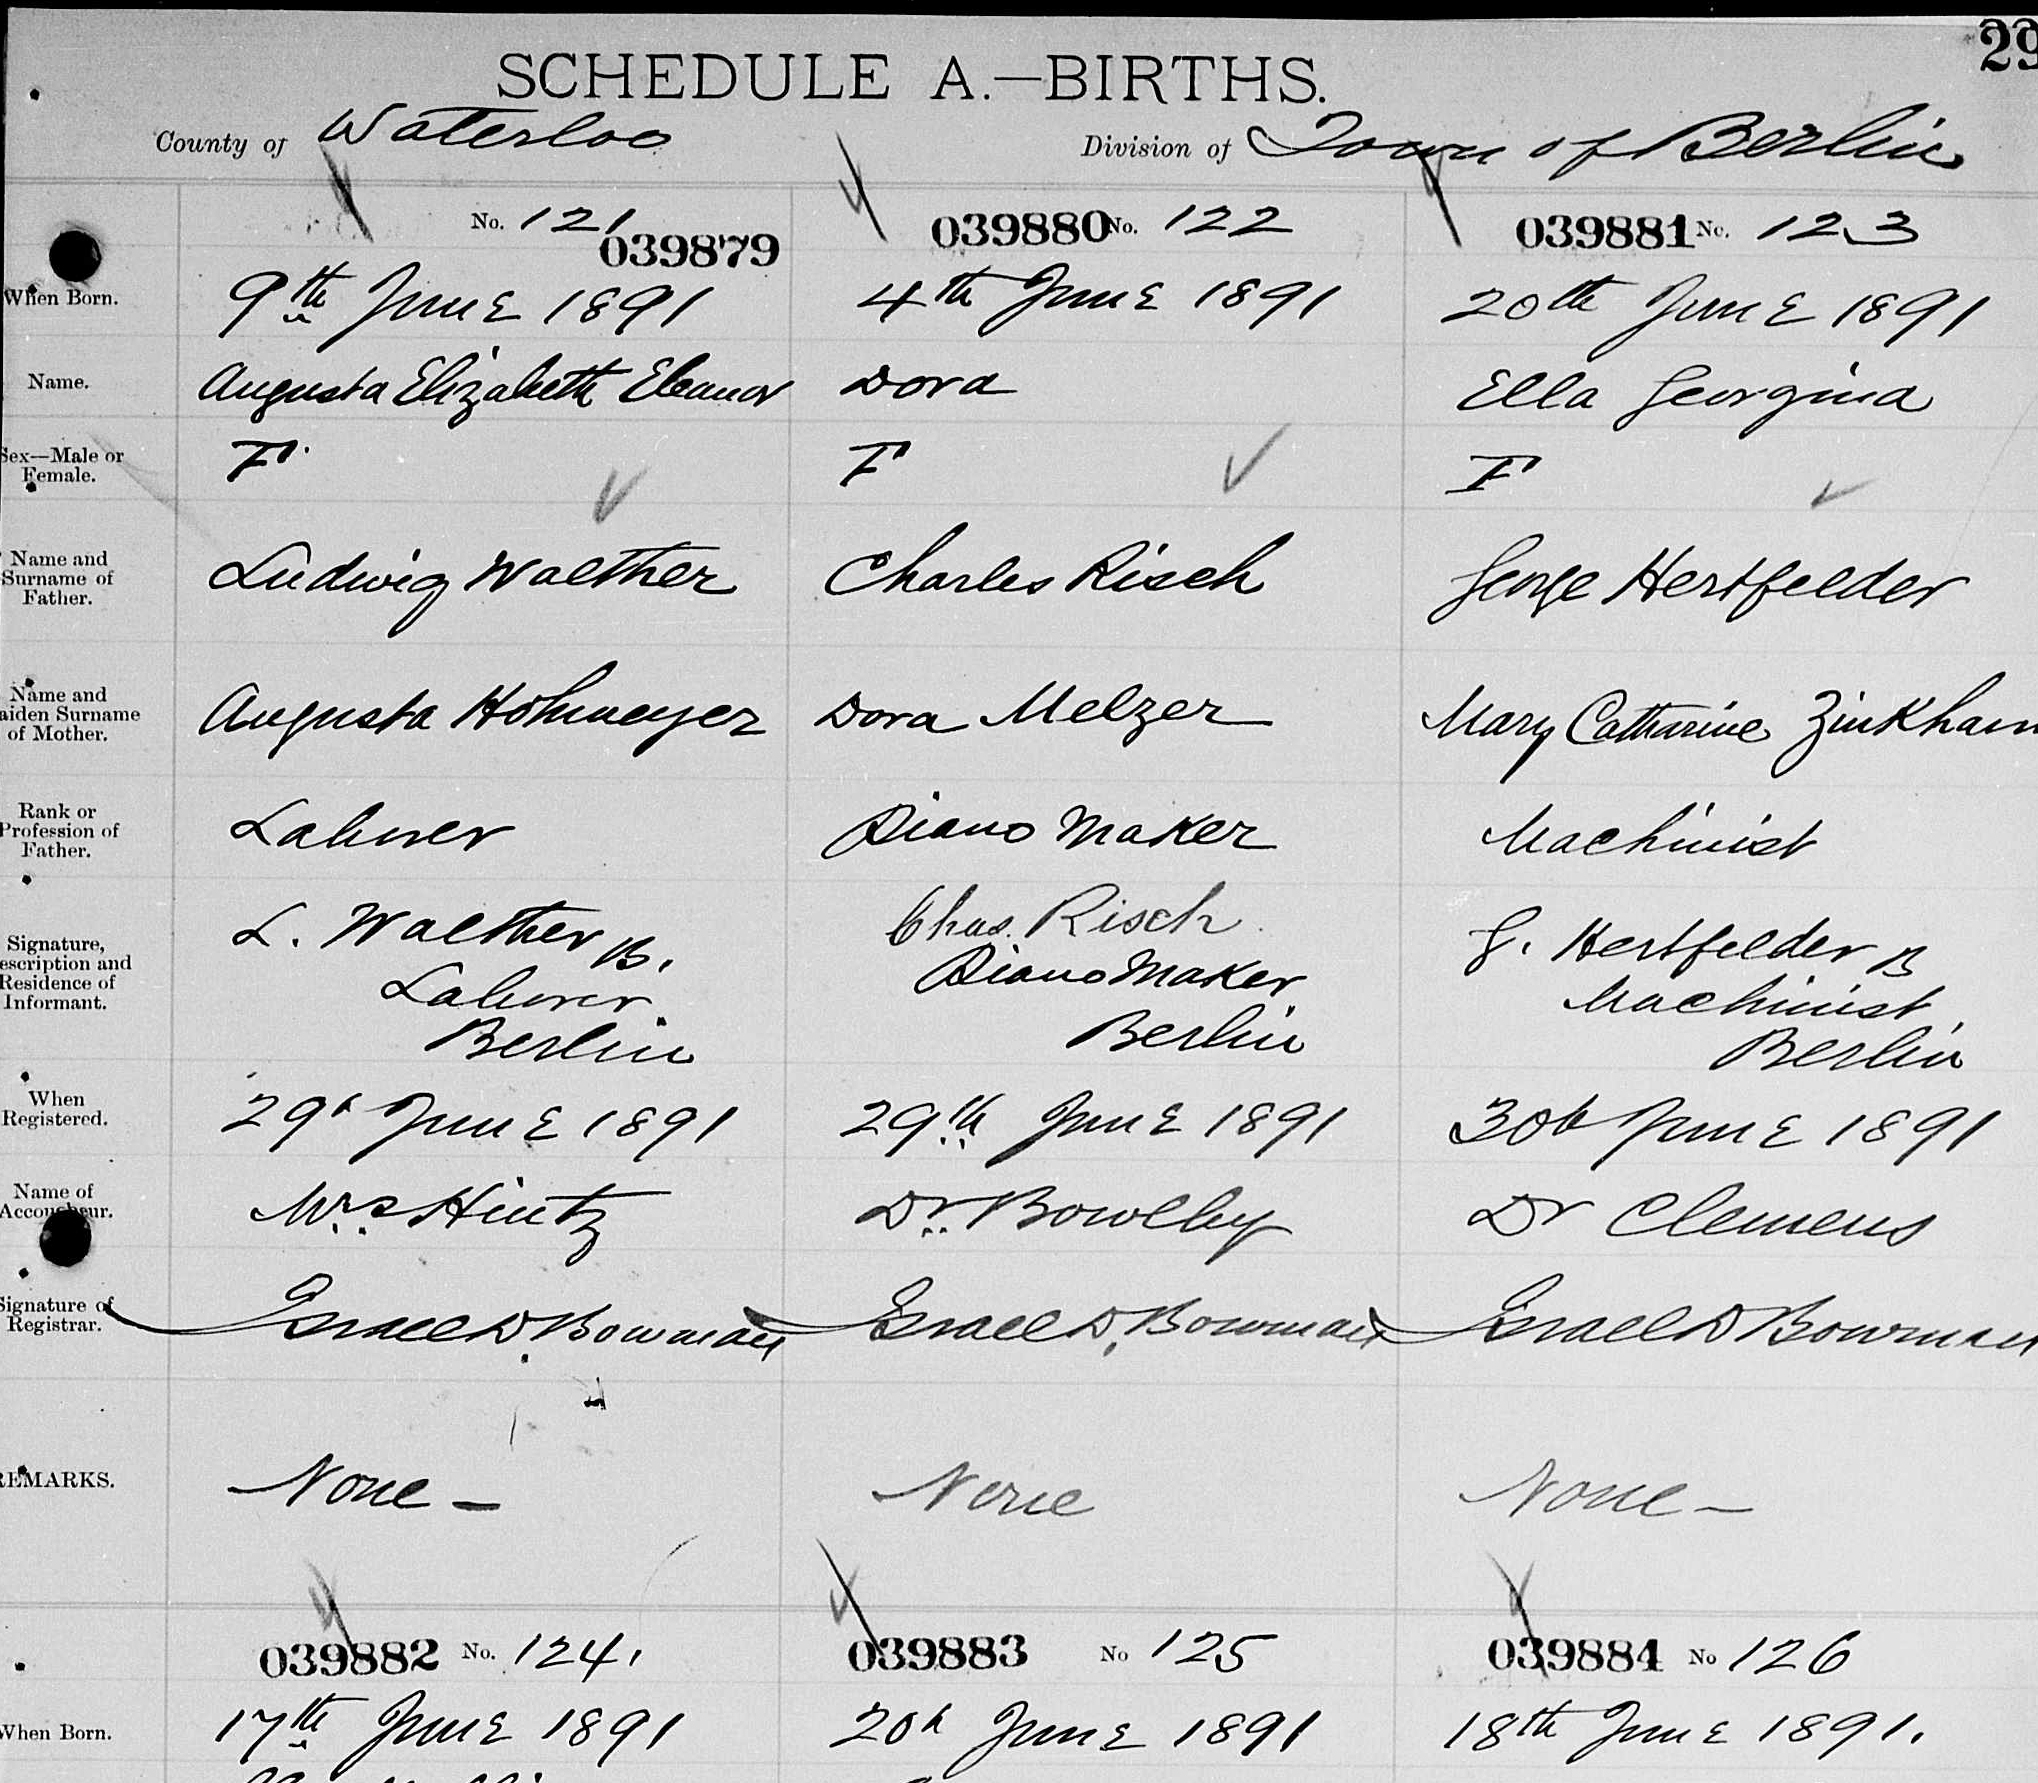 29
SCHEDULE A.—BIRTHS.
County of Waterloo Division of Town of Berlin
No. 121 039880 No. 122 039881 No. 123
039879
When Born. 9th June 1891 4th June 1891 20th June 1891
Name. Augusta Elizabeth Eleanor Dora Ella Georgina
Sex—Male or
Female. F. F F
Name and
Surname of
Father. Ludwig Walther Charles Risch George Hertfelder
Name and
aiden Surname
of Mother. Augusta Hohmeyer Dora Melzer Mary Catharine Zinkham
Rank or
Profession of
Father. Laborer Piano Maker Machinist
Signature,
escription and
Residence of
Informant. L. Walther B. Chas. Risch G. Hertfelder B
Laborer. Piano Maker Machinist
Berlin Berlin Berlin
When
Registered. 29h June 1891 29th June 1891 30th June 1891
Name of
Accoucheur. Mrs. Hintz Dr. Bowlby Dr Clemens
Signature of
Registrar. Israel D. Bowman Israel D. Bowman Israel D Bowman
REMARKS. None — None None —
039882 No. 124. 039883 No 125 039884 No 126
When Born. 17th June 1891 20h June 1891 18th June 1891.